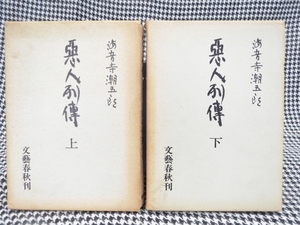 海音寺潮五郎
惡人列傳
上
文藝春秋刊
海音寺潮五郎
惡人列傳
下
文藝春秋刊